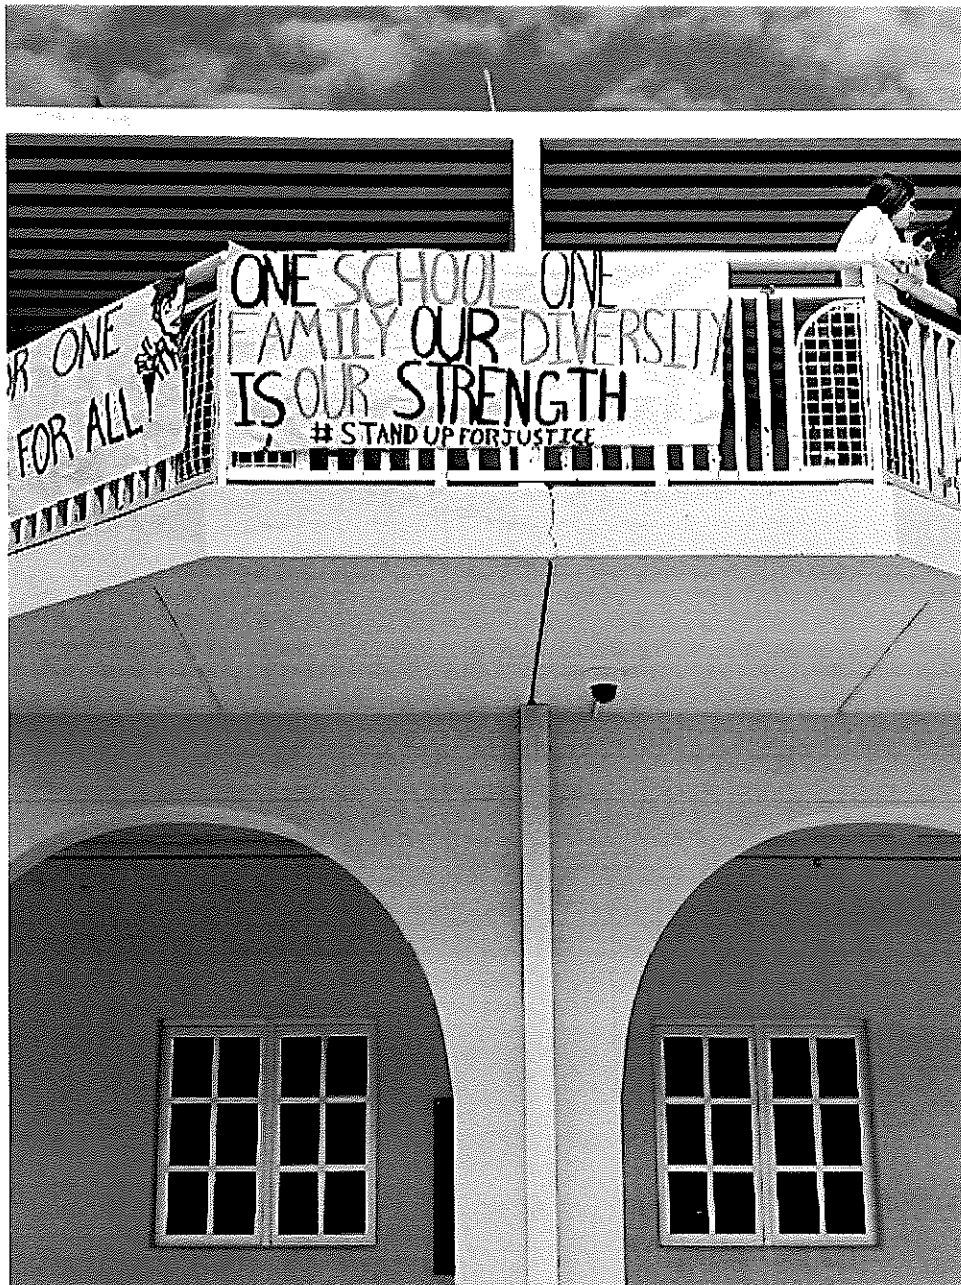 OR ONE
FOR ALL!
ONE SCHOOL ONE
FAMILY OUR DIVERSITY
IS OUR STRENGTH
# STAND UP FOR JUSTICE